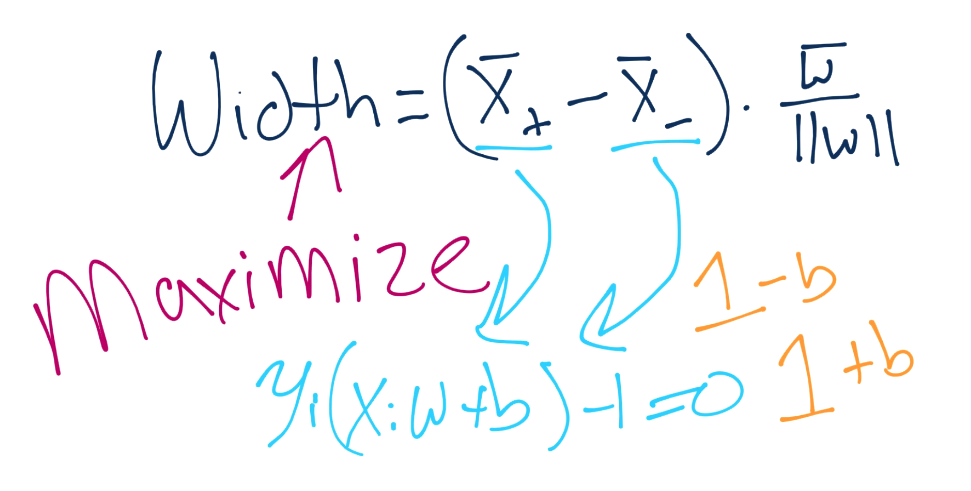 Width = (x̄₊ − x̄₋) · w̄ / ||w||
Maximize
1 − b
yᵢ(xᵢ w + b) − 1 = 0
1 + b